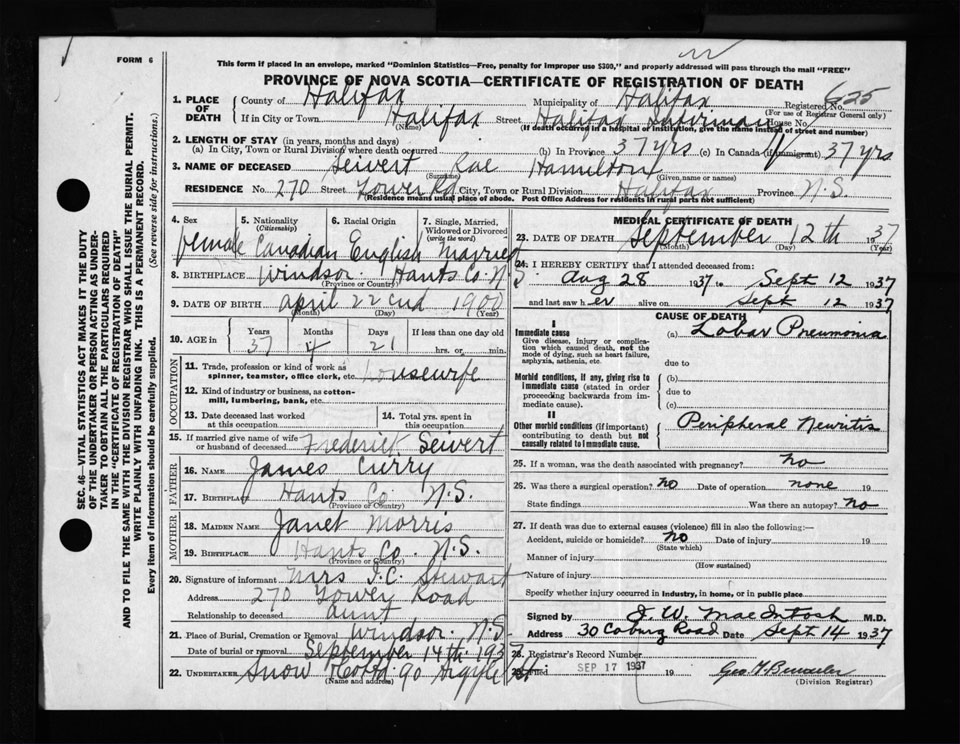 FORM 6
This form if placed in an envelope, marked "Dominion Statistics—Free, penalty for improper use $300," and properly addressed will pass through the mail "FREE"
PROVINCE OF NOVA SCOTIA—CERTIFICATE OF REGISTRATION OF DEATH
1. PLACE OF DEATH County of Halifax Municipality of Halifax Registered No. 625
(For use of Registrar General only)
If in City or Town Halifax Street Halifax House No.
(Name) (If death occurred in a hospital or institution, give the name instead of street and number)
2. LENGTH OF STAY (in years, months and days)
(a) In City, Town or Rural Division where death occurred (b) In Province 37 yrs (c) In Canada (if immigrant) 37 yrs
3. NAME OF DECEASED Seivert Rae Hamilton
(Surname) (Given name or names)
RESIDENCE No. 270 Street Tower Rd City, Town or Rural Division Halifax Province N.S.
(Residence means usual place of abode. Post Office Address for residents in rural parts not sufficient)
4. Sex 5. Nationality (Citizenship) 6. Racial Origin 7. Single, Married, Widowed or Divorced (write the word)
female Canadian English Married
8. BIRTHPLACE Windsor Hants Co. N.S
(Province or County)
9. DATE OF BIRTH April 22nd 1900
(Month) (Day) (Year)
10. AGE in Years Months Days If less than one day old
37 4 21 hrs. or min.
OCCUPATION
11. Trade, profession or kind of work as spinner, teamster, office clerk, etc. Housewife
12. Kind of industry or business, as cotton-mill, lumbering, bank, etc.
13. Date deceased last worked at this occupation 14. Total yrs. spent in this occupation
15. If married give name of wife or husband of deceased Frederick Seivert
FATHER
16. NAME James Curry
17. BIRTHPLACE Hants Co. N.S.
(Province or County)
MOTHER
18. MAIDEN NAME Janet Morris
19. BIRTHPLACE Hants Co. N.S.
(Province or County)
20. Signature of informant Mrs J.C. Stewart
Address 270 Tower Road
Relationship to deceased aunt
21. Place of Burial, Cremation or Removal Windsor. N.S
Date of burial or removal September 14th 193
22. UNDERTAKER Snow 90 Argyle St.
(Name and address)
MEDICAL CERTIFICATE OF DEATH
23. DATE OF DEATH September 12th 1937
(Month) (Day) (Year)
24. I HEREBY CERTIFY that I attended deceased from:
Aug 28 1937 to Sept 12 1937
and last saw her alive on Sept 12 1937
CAUSE OF DEATH
I
Immediate cause (a) Lobar Pneumonia
Give disease, injury or complication which caused death, not the mode of dying, such as heart failure, asphyxia, asthenia, etc.
due to
Morbid conditions, if any, giving rise to immediate cause (stated in order proceeding backwards from immediate cause).
(b)
due to
(c)
II
Other morbid conditions (if important) contributing to death but not causally related to immediate cause.
Peripheral Neuritis
25. If a woman, was the death associated with pregnancy? no
26. Was there a surgical operation? no Date of operation none 19
State findings Was there an autopsy? no
27. If death was due to external causes (violence) fill in also the following:—
Accident, suicide or homicide? no Date of injury 19
(State which)
Manner of injury
(How sustained)
Nature of injury
Specify whether injury occurred in Industry, in home, or in public place
Signed by J. W. MacIntosh M.D.
Address 30 Coburg Road Date Sept 14 1937
28. Registrar's Record Number
29. Filed SEP 17 1937 19
(Division Registrar)
SEC. 46—VITAL STATISTICS ACT MAKES IT THE DUTY
OF THE UNDERTAKER OR PERSON ACTING AS UNDER-
TAKER TO OBTAIN ALL THE PARTICULARS REQUIRED
IN THE "CERTIFICATE OF REGISTRATION OF DEATH"
AND TO FILE THE SAME WITH THE DIVISION REGISTRAR WHO SHALL ISSUE THE BURIAL PERMIT.
WRITE PLAINLY WITH UNFADING INK. THIS IS A PERMANENT RECORD.
Every item of information should be carefully supplied. (See reverse side for instructions.)